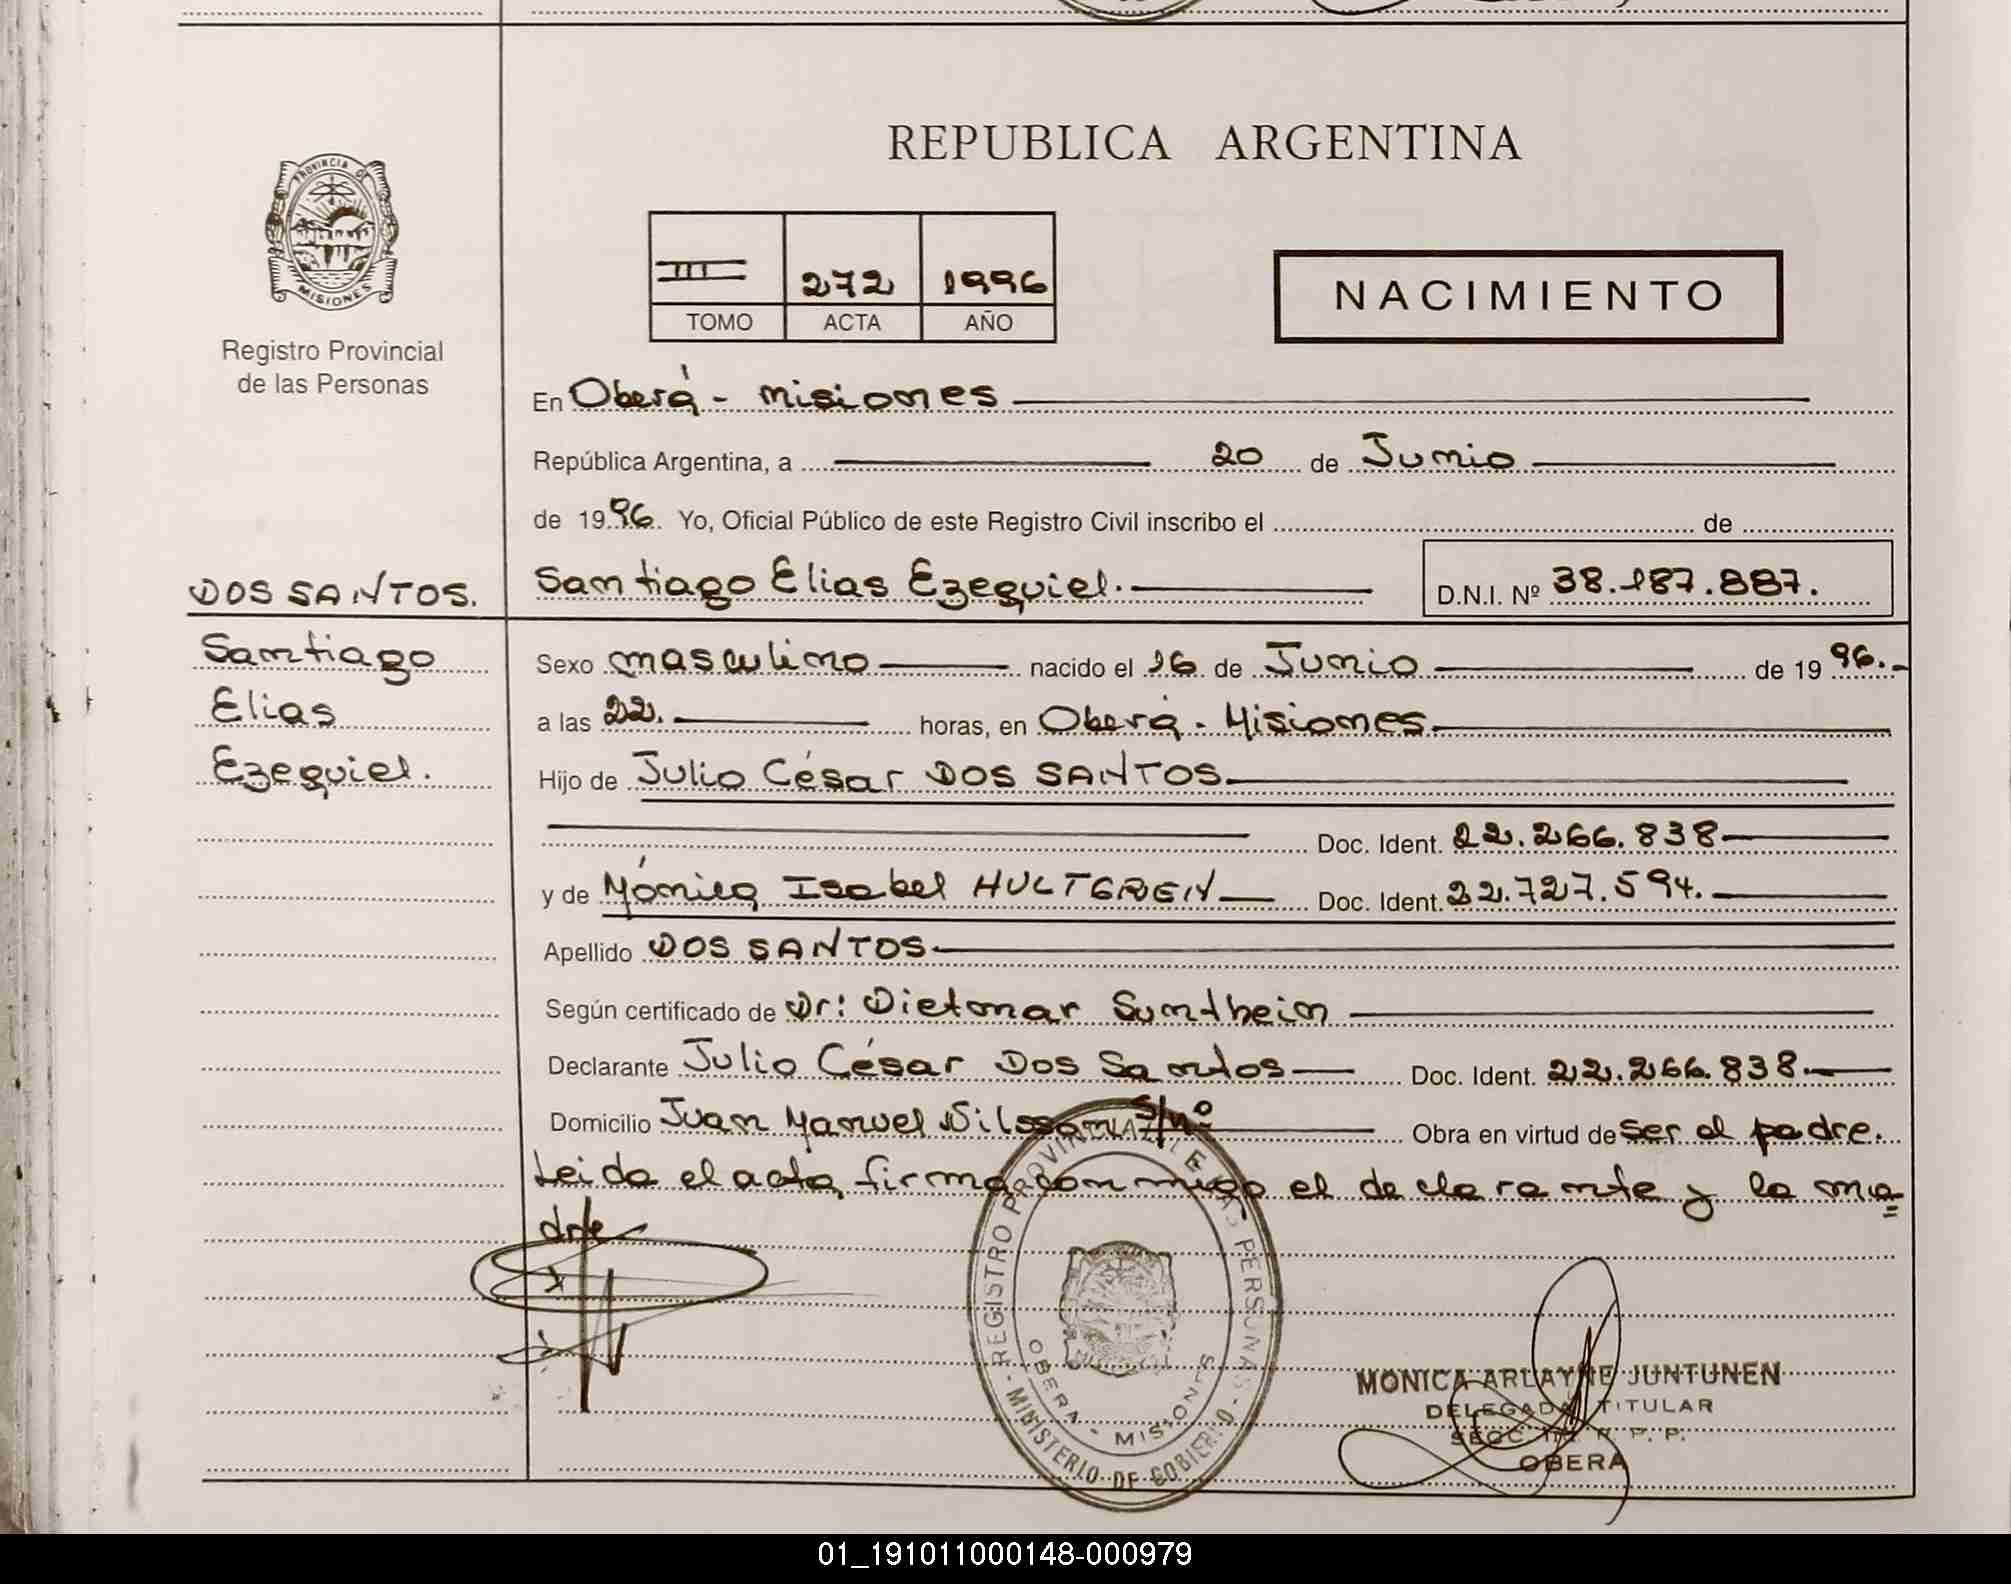 REPUBLICA ARGENTINA
PROVINCIA DE
MISIONES
Registro Provincial
de las Personas
III 272 1996
TOMO ACTA AÑO
NACIMIENTO
En Oberá - misiones
República Argentina, a 20 de Junio
de 1996. Yo, Oficial Público de este Registro Civil inscribo el de
DOS SANTOS. Santiago Elias Ezequiel. D.N.I. Nº 38.187.887.
Santiago
Elias
Ezequiel.
Sexo masculino nacido el 16 de Junio de 1996.-
a las 22. horas, en Oberá - Misiones
Hijo de Julio César DOS SANTOS
Doc. Ident. 22.266.838
y de Mónica Isabel HULTGREN Doc. Ident. 22.727.594.
Apellido DOS SANTOS
Según certificado de Dr: Dietmar Suntheim
Declarante Julio César Dos Santos Doc. Ident. 22.266.838.
Domicilio Juan Manuel Nilssan S/nº Obra en virtud de ser el padre.
Leida el acta, firma conmigo el declarante y la ma=
dre
REGISTRO PROVINCIAL DE LAS PERSONAS - MINISTERIO DE GOBIERNO -
OBERA - MISIONES
MONICA ARLAYNE JUNTUNEN
DELEGADA TITULAR
SECC. R. P. P.
OBERA
01_191011000148-000979